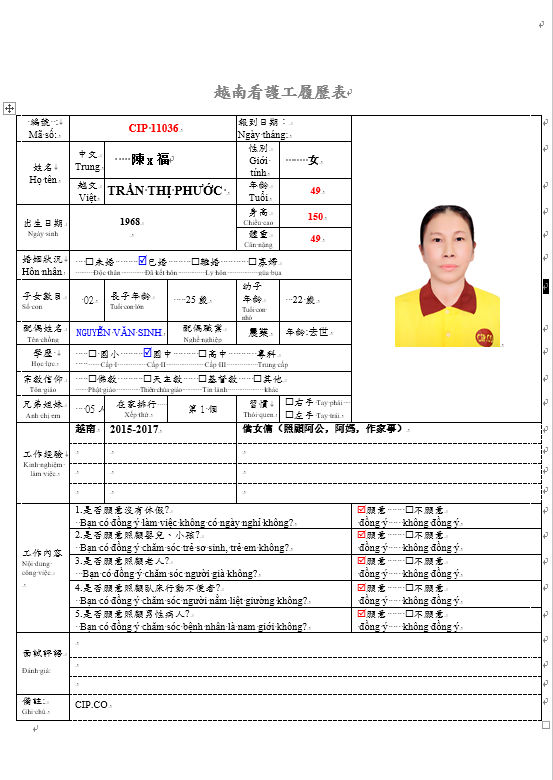 越南看護工履歷表
編號: CIP 11036 報到日期:
Mã số: Ngày tháng:
姓名 中文 陳 x 福 性別 女
Họ tên Trung Giới tính
越文 TRẦN THỊ PHƯỚC 年齡 49
Việt Tuổi
出生日期 1968 身高 150
Ngày sinh Chiều cao
體重 49
Cân nặng
婚姻狀況 □未婚 ☑已婚 □離婚 □寡婦
Hôn nhân Độc thân Đã kết hôn Ly hôn góa bụa
子女數目 02 長子年齡 25 歲 幼子年齡 22 歲
Số con Tuổi con lớn Tuổi con nhỏ
配偶姓名 NGUYỄN VĂN SINH 配偶職業 農業 年齡:去世
Tên chồng Nghề nghiệp
學歷 □ 國小 ☑國中 □高中 專科
Học lực Cấp I Cấp II Cấp III Trung cấp
宗教信仰 □佛教 □天主教 □基督教 □其他
Tôn giáo Phật giáo Thiên chúa giáo Tin lành khác
兄弟姐妹 05 人 在家排行 第 1 個 習慣 □右手 Tay phải
Anh chị em Xếp thứ Thói quen □左手 Tay trái
工作經驗 越南 2015-2017 女傭(照顧阿公, 阿媽, 作家事)
Kinh nghiệm làm việc
工作內容 1.是否願意沒有休假? ☑願意 □不願意
Nội dung công việc Bạn có đồng ý làm việc không có ngày nghỉ không? đồng ý không đồng ý
2.是否願意照顧嬰兒、小孩? ☑願意 □不願意
Bạn có đồng ý chăm sóc trẻ sơ sinh, trẻ em không? đồng ý không đồng ý
3.是否願意照顧老人? ☑願意 □不願意
Bạn có đồng ý chăm sóc người già không? đồng ý không đồng ý
4.是否願意照顧臥床行動不便者? ☑願意 □不願意
Bạn có đồng ý chăm sóc người nằm liệt giường không? đồng ý không đồng ý
5.是否願意照顧男性病人? ☑願意 □不願意
Bạn có đồng ý chăm sóc bệnh nhân là nam giới không? đồng ý không đồng ý
面試評語
Đánh giá:
備註: CIP.CO
Ghi chú